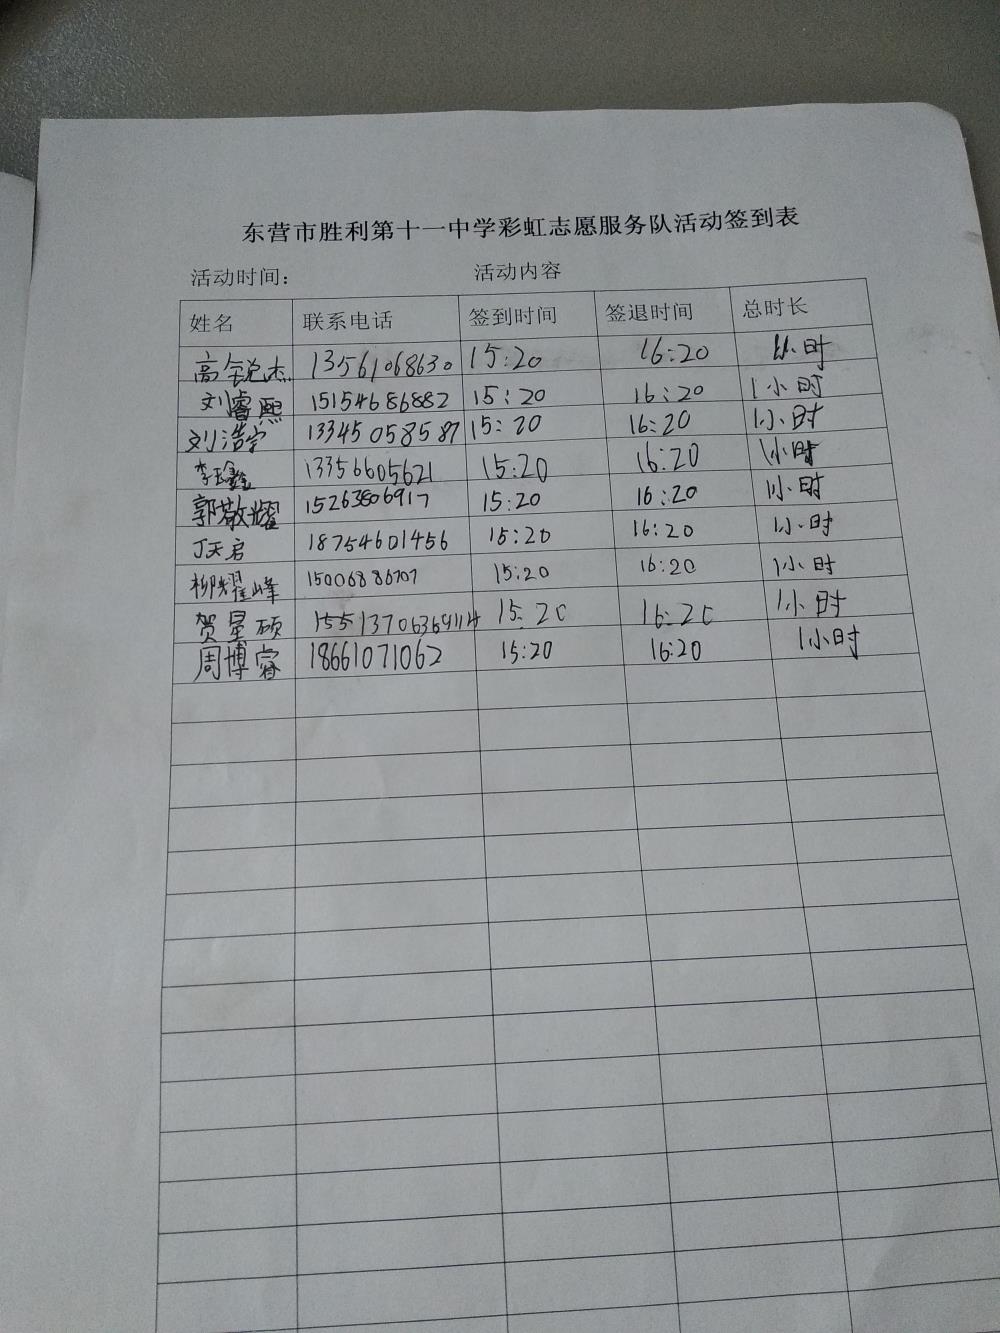 东营市胜利第十一中学彩虹志愿服务队活动签到表
活动时间: 活动内容
姓名 联系电话 签到时间 签退时间 总时长
高锐杰 13561068630 15:20 16:20 1小时
刘睿熙 15154686882 15:20 16:20 1小时
刘浩宇 13345058587 15:20 16:20 1小时
李鑫 13356605621 15:20 16:20 1小时
郭敬耀 15263806917 15:20 16:20 1小时
丁天启 18754601456 15:20 16:20 1小时
柳耀峰 15006886707 15:20 16:20 1小时
贺星硕 15:20 16:20 1小时
周博睿 18661071062 15:20 16:20 1小时